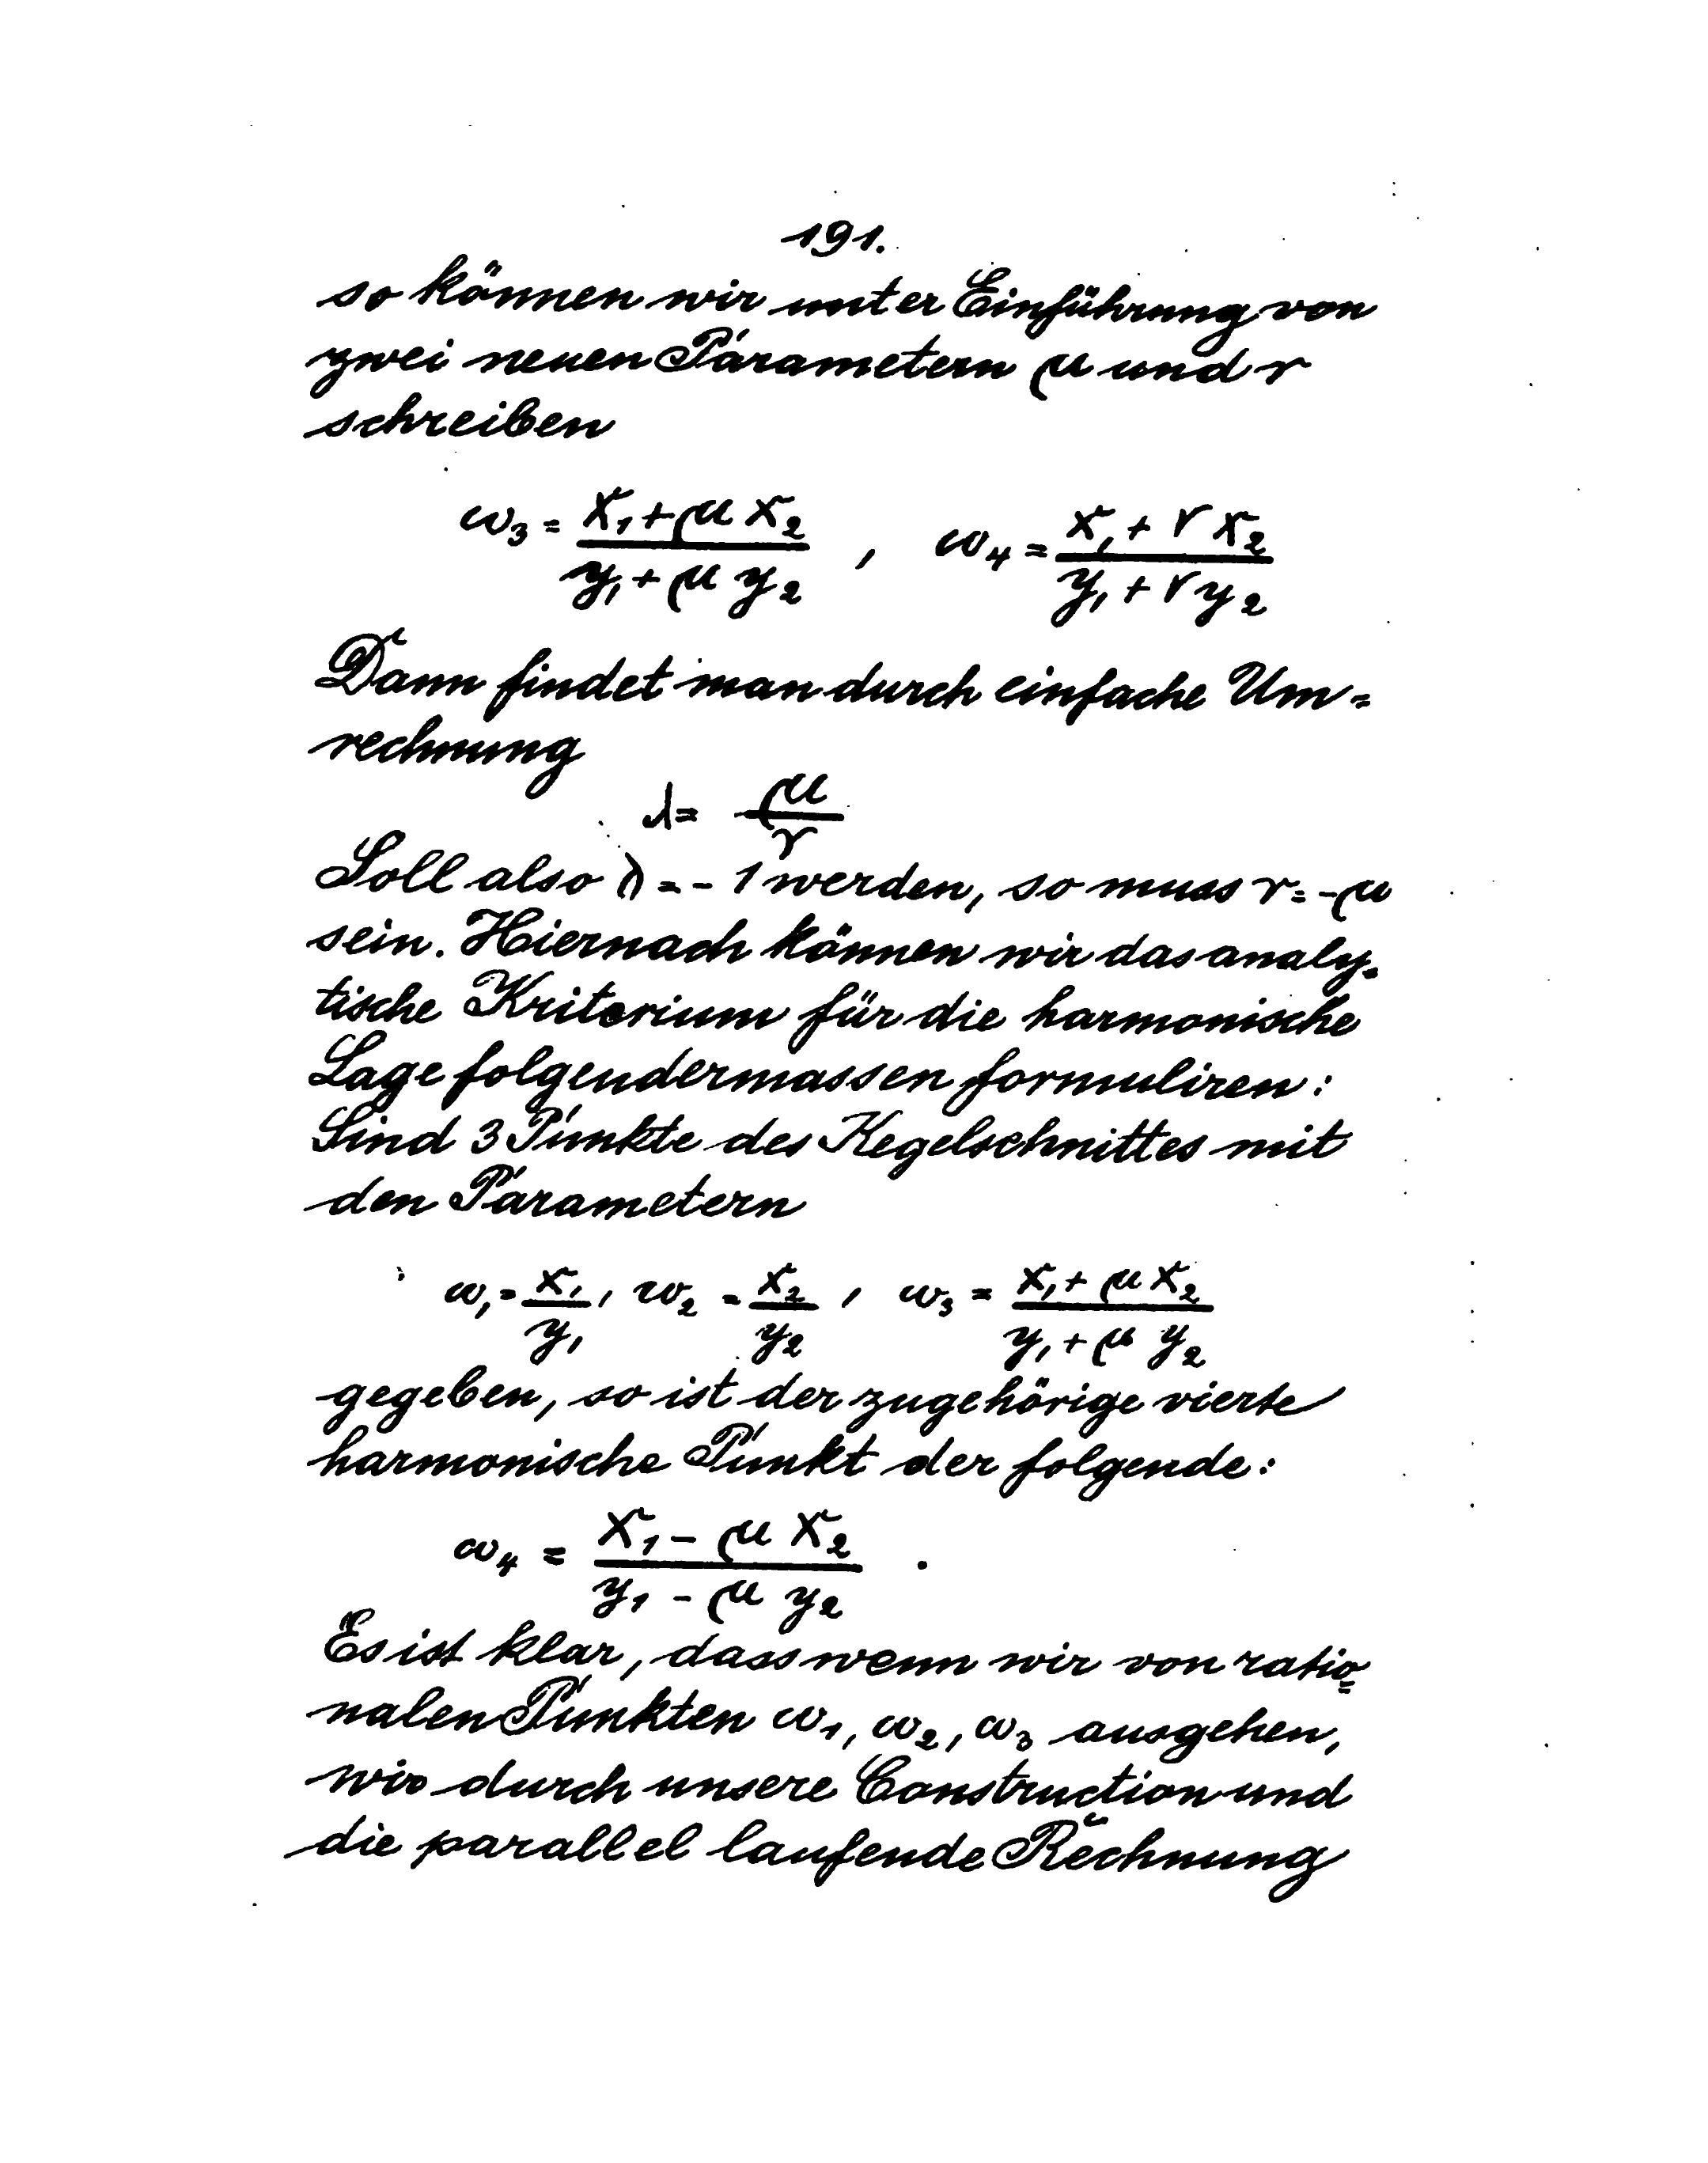 191.
so können wir unter Einführung von
zwei neuen Parametern μ und ν
schreiben
ω₃ = (x₁ + μ x₂)/(y₁ + μ y₂) , ω₄ = (x₁ + ν x₂)/(y₁ + ν y₂)
Dann findet man durch einfache Um=
rechnung
λ = μ/ν
Soll also λ = - 1 werden, so muss ν = -μ
sein. Hiernach können wir das analy-
tische Kriterium für die harmonische
Lage folgendermassen formuliren:
Sind 3 Punkte des Kegelschnittes mit
den Parametern
ω₁ = x₁/y₁, ω₂ = x₂/y₂ , ω₃ = (x₁ + μ x₂)/(y₁ + μ y₂)
gegeben, so ist der zugehörige vierte
harmonische Punkt der folgende:
ω₄ = (x₁ - μ x₂)/(y₁ - μ y₂) .
Es ist klar, dass wenn wir von ratio=
nalen Punkten ω₁, ω₂, ω₃ ausgehen,
wir durch unsere Construction und
die parallel laufende Rechnung